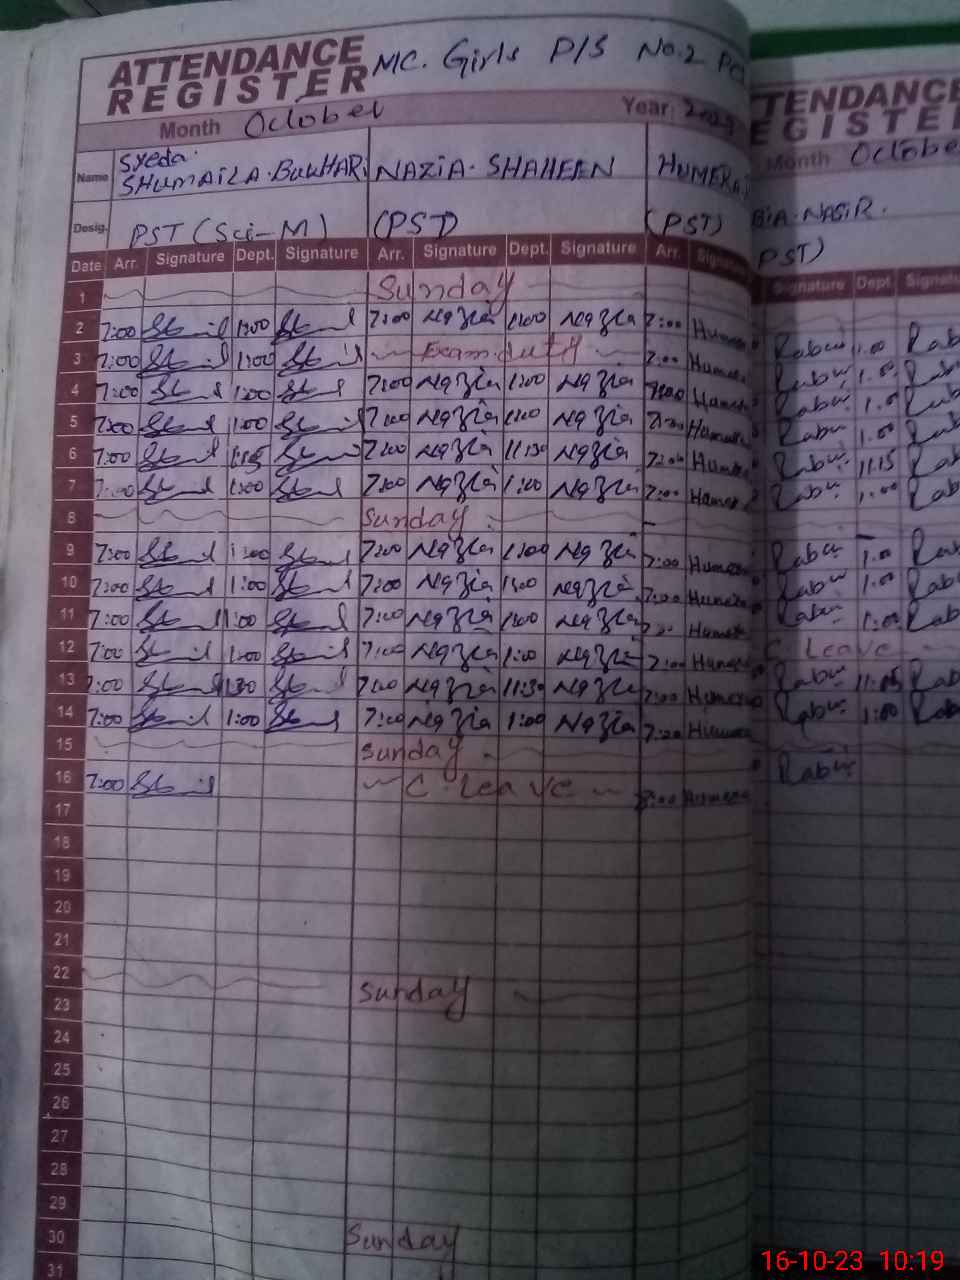 ATTENDANCE REGISTER MC. Girls P/S No.2
Month October Year 2023
Name Syeda. SHUMAILA.BUKHARI NAZIA. SHAHEEN HUMERA.
Desig. PST (Sci-M) (PST) (PST)
Date Arr. Signature Dept. Signature Arr. Signature Dept. Signature Arr. Signature
1 Sunday
2 7:00 1:00 7:00 Nazia 1:00 Nazia 7:00 Humera
3 7:00 1:00 Exam duty 7:00 Humera
4 7:00 1:00 7:00 Nazia 1:00 Nazia 7:00 Humera
5 7:00 1:00 7:00 Nazia 1:00 Nazia 7:00 Humera
6 7:00 7:00 Nazia 11:30 Nazia 7:00 Humera
7 7:00 1:00 7:00 Nazia 1:00 Nazia 7:00 Humera
8 Sunday
9 7:00 1:00 7:00 Nazia 1:00 Nazia 7:00 Humera
10 7:00 1:00 7:00 Nazia 1:00 Nazia 7:00 Humera
11 7:00 1:00 7:00 Nazia 1:00 Nazia Humera
12 7:00 1:00 7:00 Nazia 1:00 Nazia 7:00 Humera
13 7:00 7:00 Nazia 11:30 Nazia 7:00 Humera
14 7:00 1:00 7:00 Nazia 1:00 Nazia 7:00 Humera
15 Sunday
16 7:00 C. Leave Humera
17
18
19
20
21
22 Sunday
23
24
25
26
27
28
29
30 Sunday
31
TENDANCE
EGISTE
Month Octobe
BIA. NASIR.
PST)
Signature Dept. Signat
Rabia 1:00 Rab
Rabia 1:00 Rab
Rabia 1:0 Rab
Rabia 1:00 Rab
Rabia 11:15 Rab
Rabia 1:00 Rab
Rabia 1:00 Rab
Rabia 1:00 Rab
Rabia 1:00 Rab
C Leave
Rabia Rab
Rabia 1:00 Rab
Rabia
16-10-23 10:19